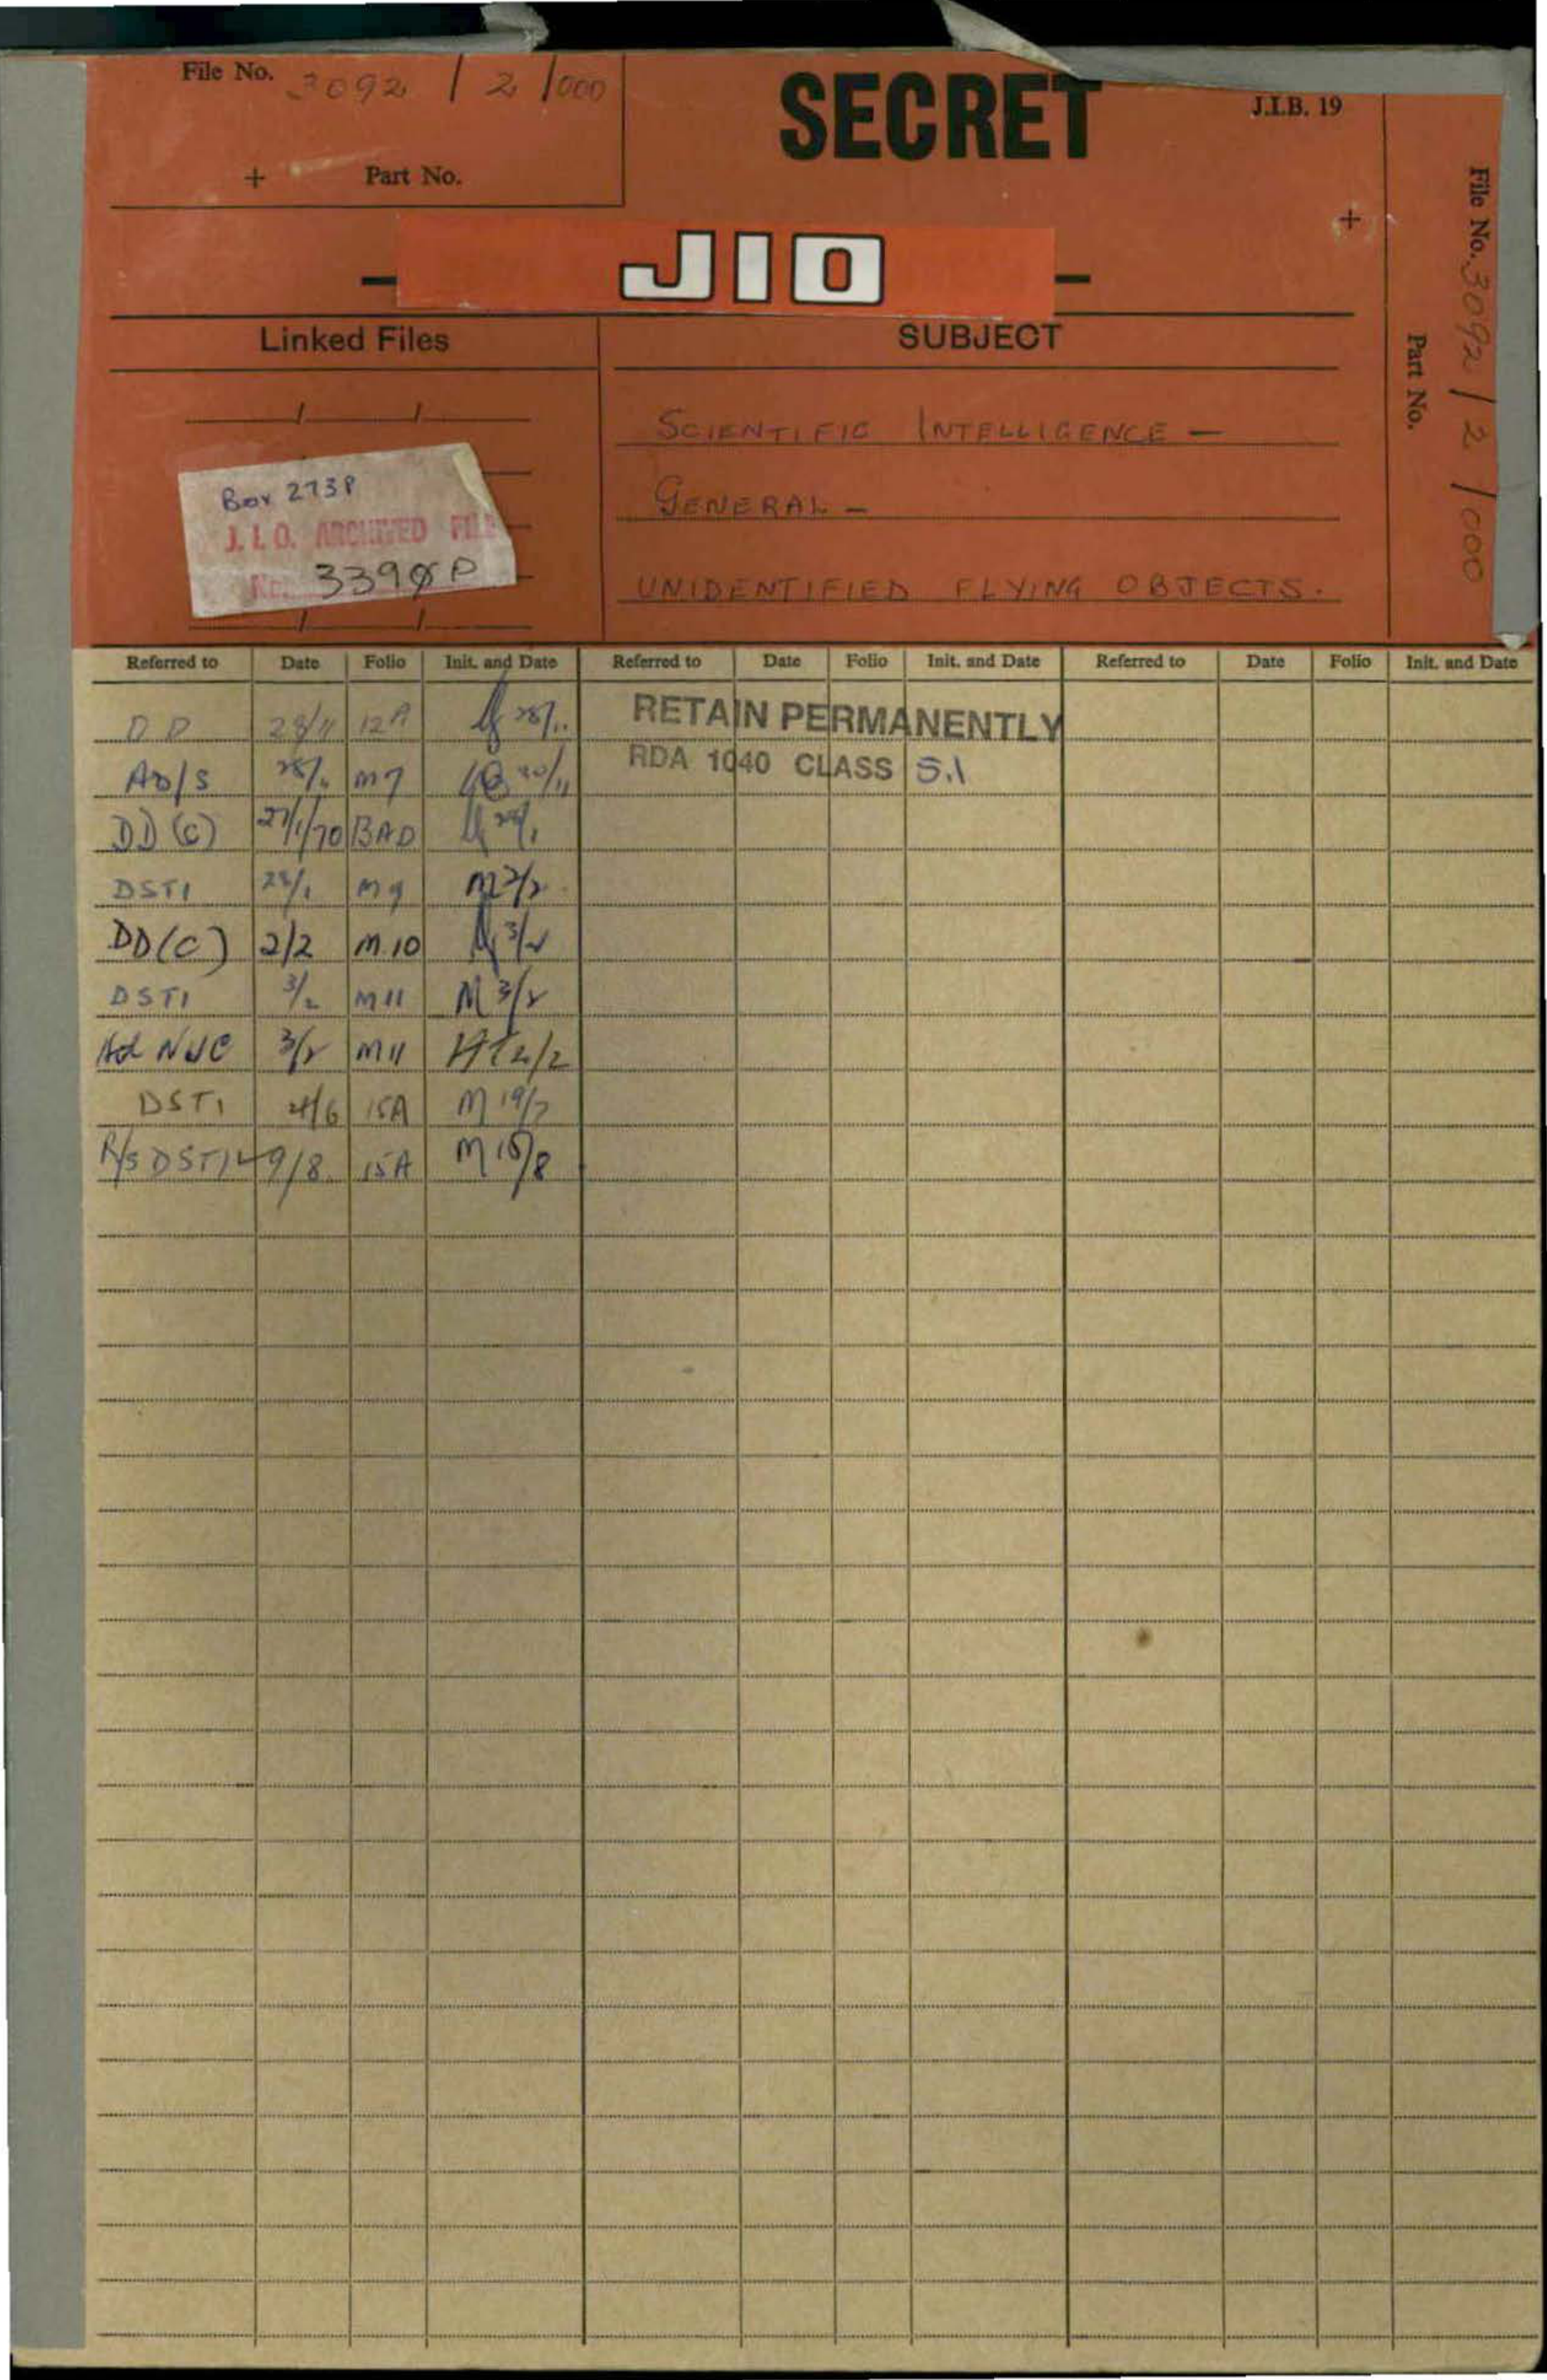 File No. 3092 / 2 / 000
SECRET
J.I.B. 19
+ Part No.
+
File No. 3092 / 2 / 000
Part No.
- JIO -
Linked Files
SUBJECT
SCIENTIFIC INTELLIGENCE -
GENERAL -
UNIDENTIFIED FLYING OBJECTS.
Box 273P
J.I.O. ARCHIVED FILE
No.
Referred to Date Folio Init. and Date Referred to Date Folio Init. and Date Referred to Date Folio Init. and Date
DD 28/11 12A 28/11
RETAIN PERMANENTLY
RDA 1040 CLASS 5.1
AD/S M7
DD(C) 27/1/70 BAD
DSTI 28/1 M9 M 2/2
DD(C) 2/2 M.10 3/2
DSTI 3/2 M11 M 3/2
3/2 M11 2/2
DSTI 15A M 19/7
R/S DSTI 9/8 15A M 18/8